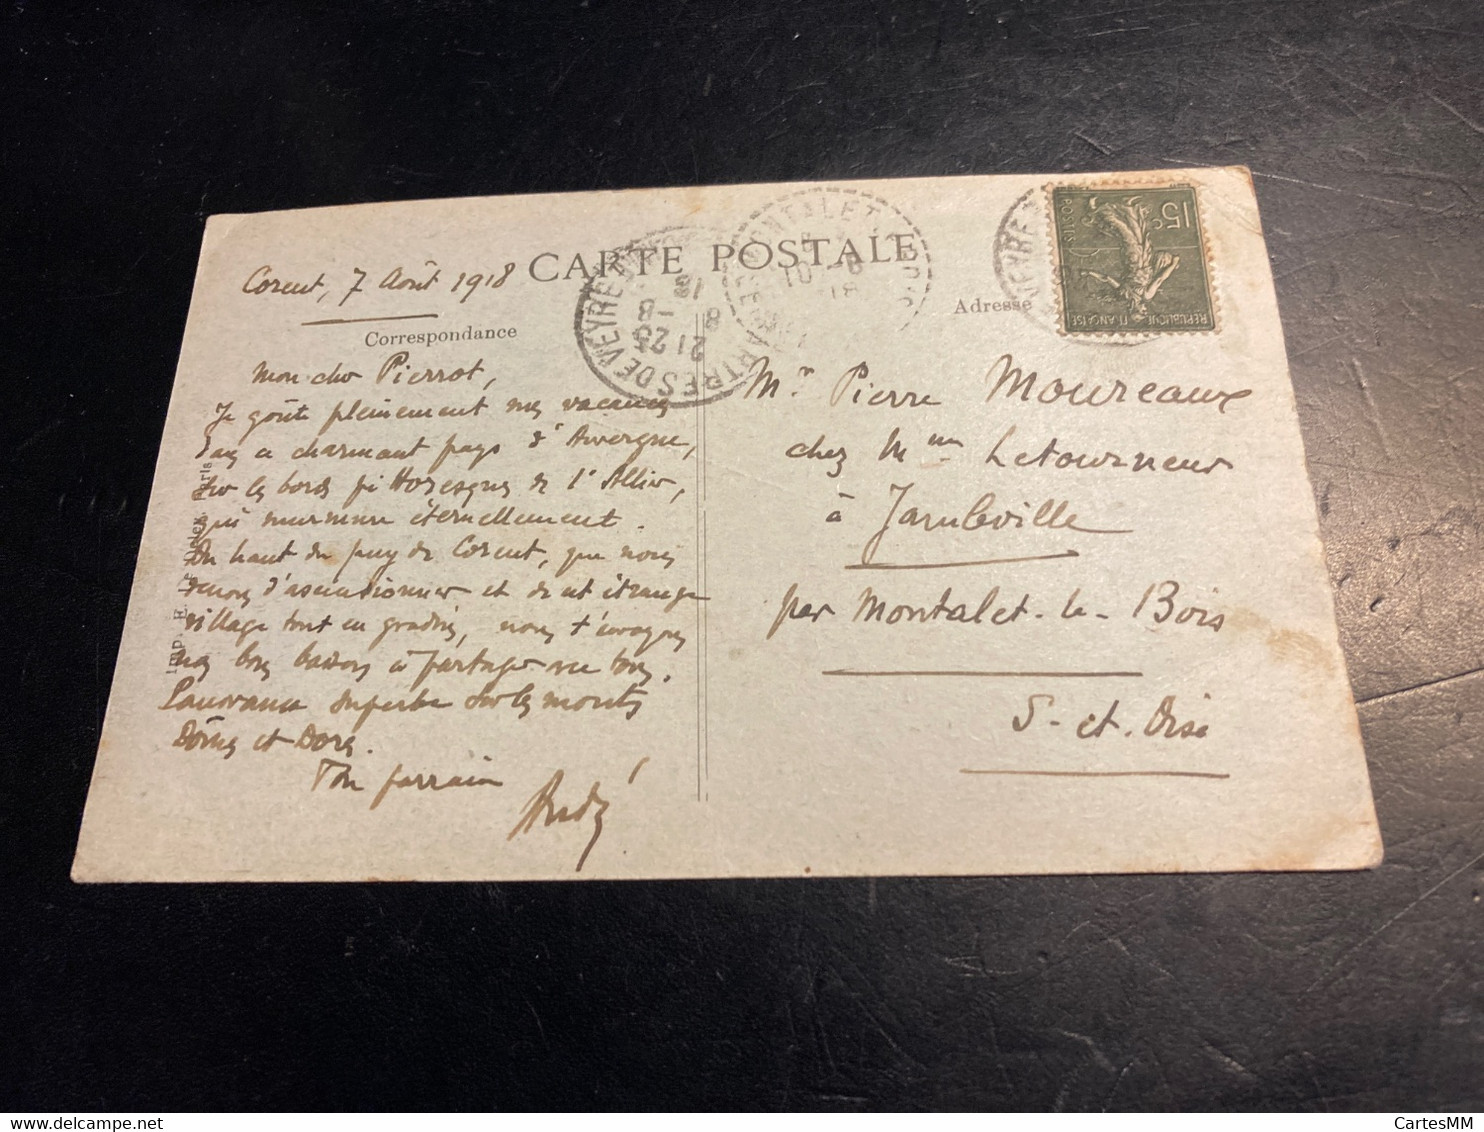 CARTE POSTALE
Corent, 7 Août 1918
Correspondance
Mon cher Pierrot,
Je goûte pleinement mes vacances
dans ce charmant pays d'Auvergne,
sur les bords pittoresques de l'Allier,
qui murmure éternellement.
Du haut du puy de Corent, que nous
venons d'ascensionner et de cet étrange
village tout en gradins, nous t'envoyons
nos bons baisers à partager avec tous.
Panorama superbe sur les monts
Dômes et Dore.
Ton parrain
André
Adresse
Mr Pierre Moureaux
chez Mme Letourneur
à Jambville
par Montalet-le-Bois
S-et-Oise
MARTRES DE VEYRE
21 25
8 -8
18
MONTALET
10 -8
18
15c
POSTES
REPUBLIQUE FRANÇAISE
Paris
delcampe.net
CartesMM